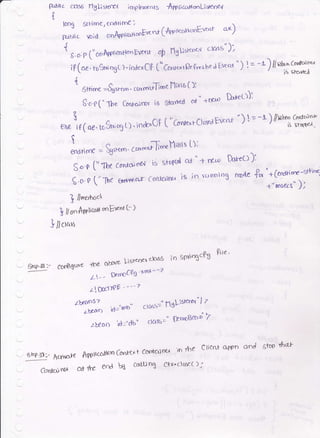 public class MyListener implements ApplicationListener
{
long strtime, endtime;
public void onApplicationEvent (ApplicationEvent ae)
{
S.o.p ("onApplicationEvent of MyListener class");
if(ae.toString().indexOf ("ContextRefreshedEvent") != -1) // when Container is started
{
strtime = System.currentTimeMillis();
S.o.p("The Container is started at "+new Date());
}
else if(ae.toString().indexOf ("ContextClosedEvent") != -1) // when Container is stopped
{
endtime = System.currentTimeMillis();
S.o.p ("The Container is stopped at "+ new Date());
S.o.p ("The Container is in running mode for "+(endtime-strtime)
+"msecs");
}
} // method
} // onApplicationEvent(-)
} // class
configure the above Listener class in springcfg file.
<!-- DemoCfg.xml -->
<!DOCTYPE ---->
<beans>
<bean id="ml" class="MyListener"/>
<bean id="db" class="DemoBean"/>
Activate ApplicationContext Container in the Client appn and stop that
Container at the end by calling ctx.close();